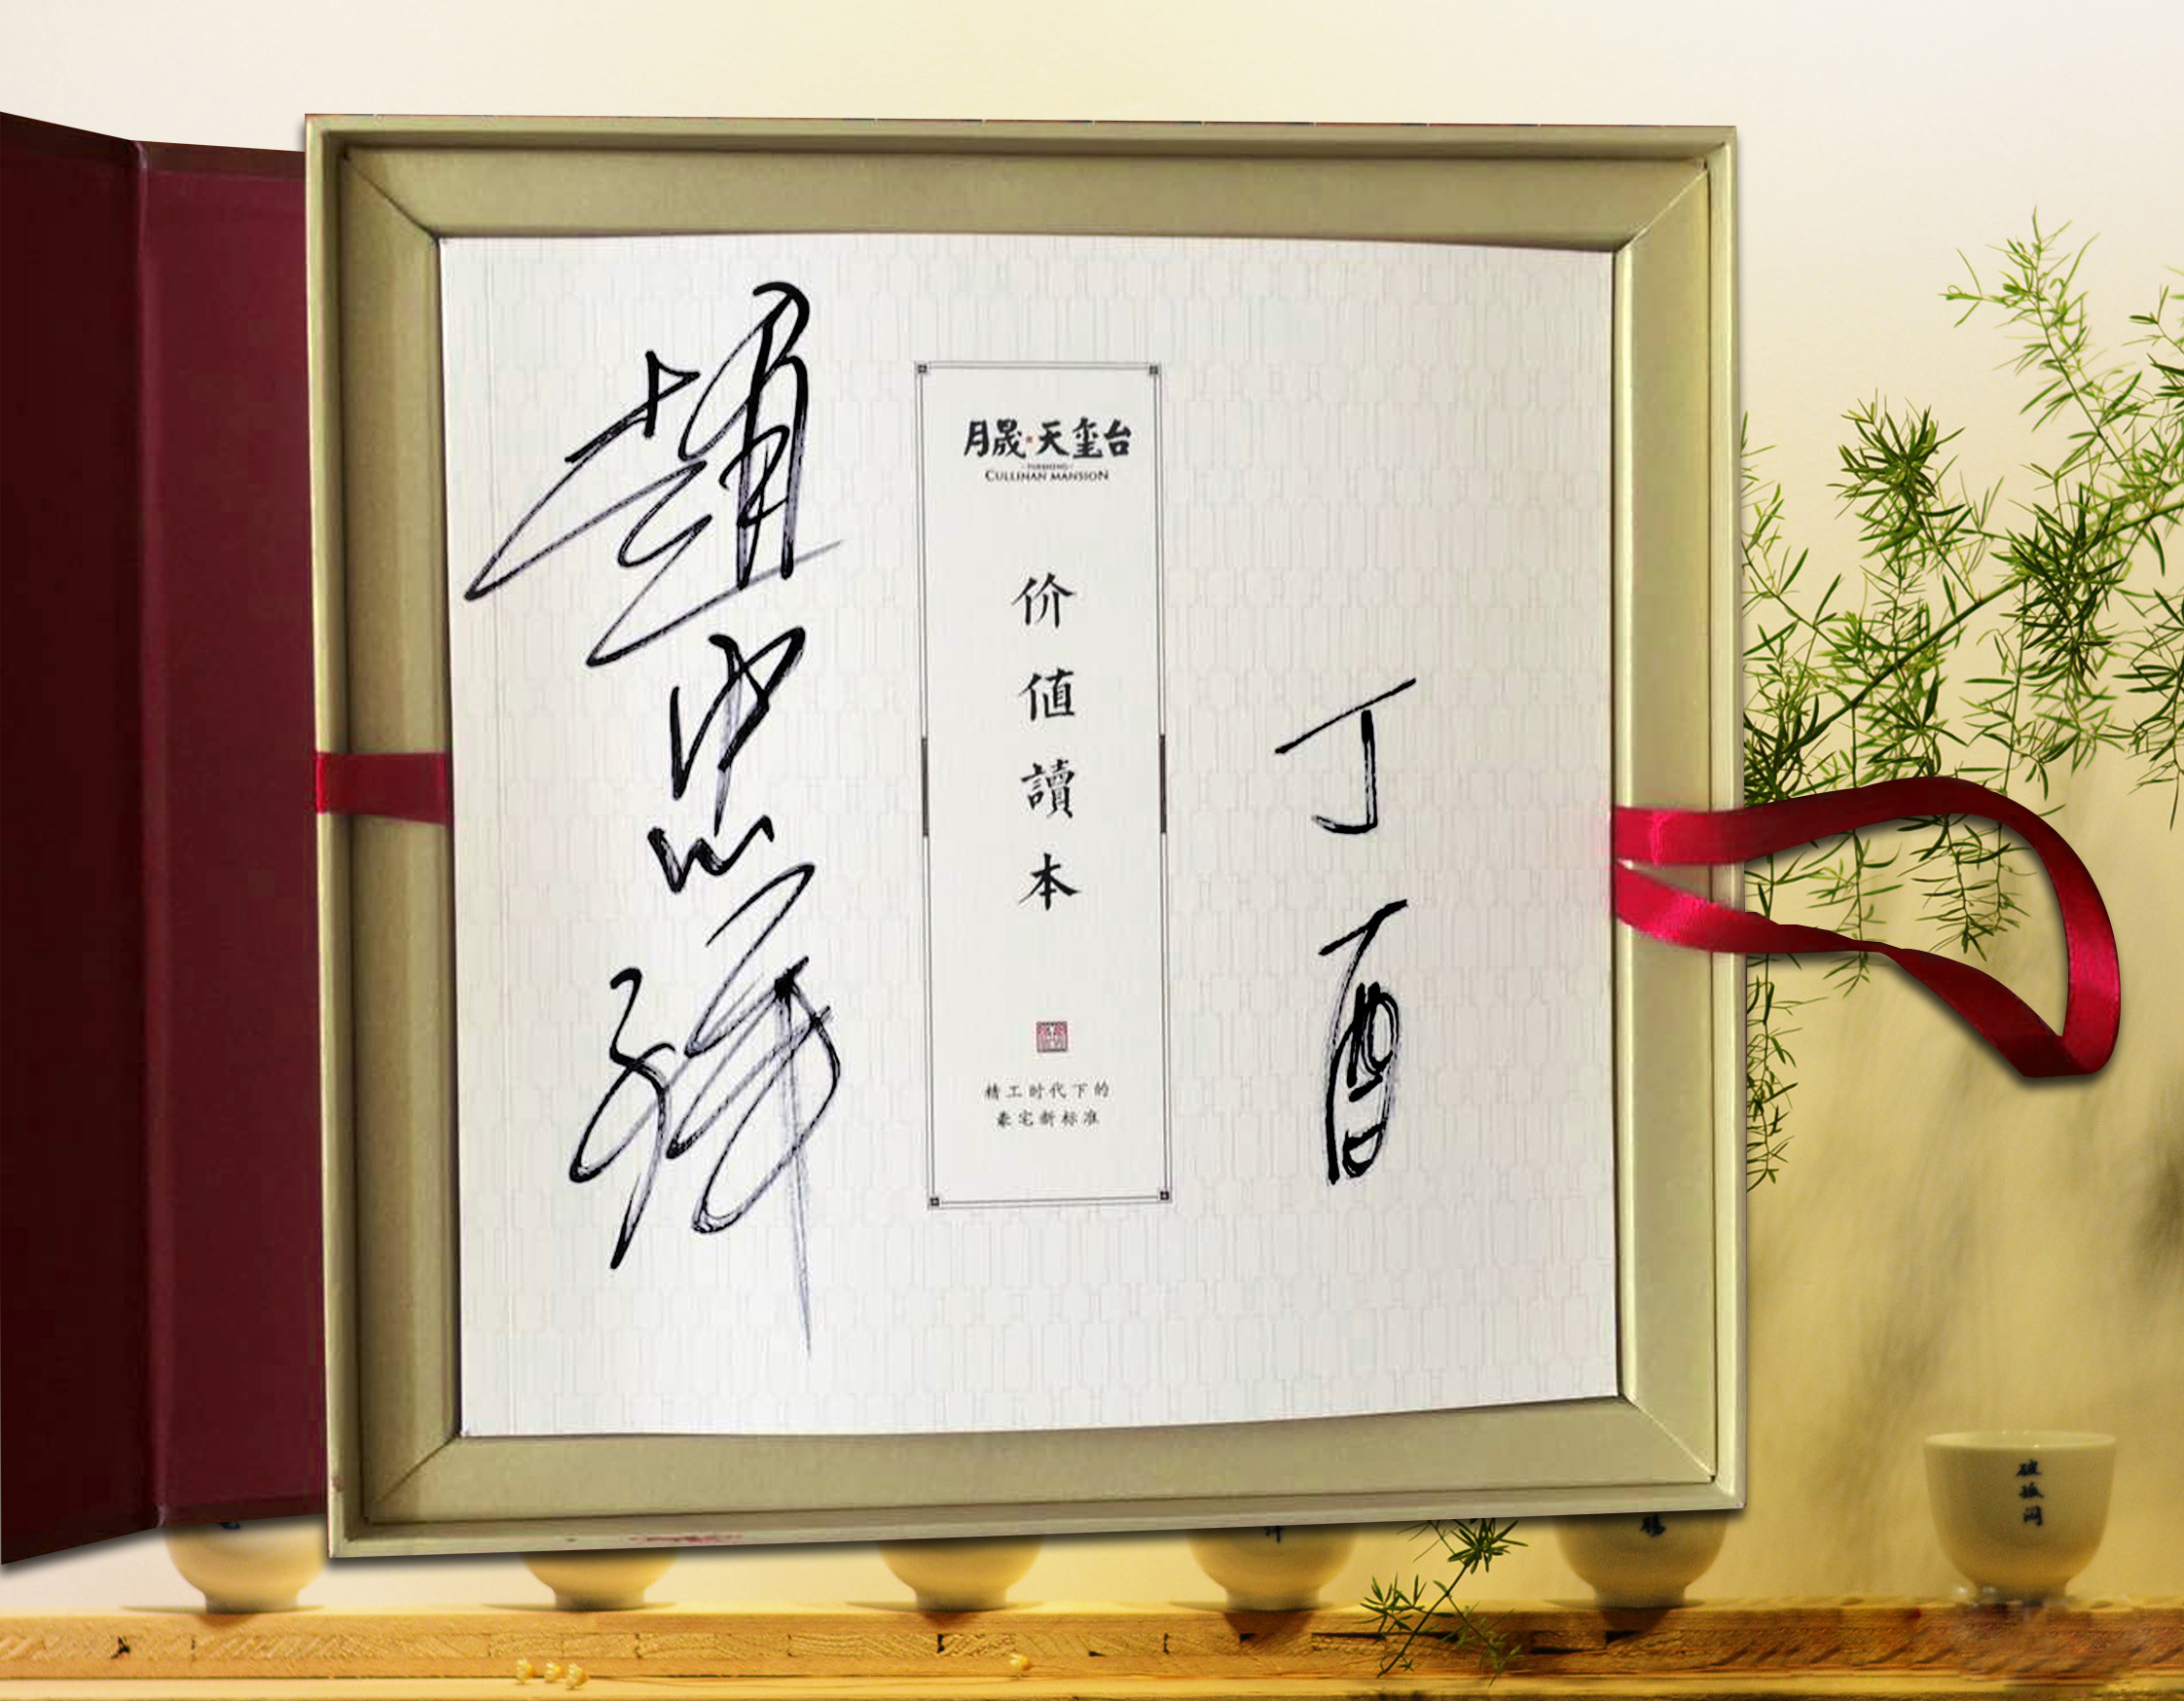 趙忠祥
月晟·天玺台
CULLINAN MANSION
价值讀本
精工时代下的
豪宅新标准
丁酉
破孤闷